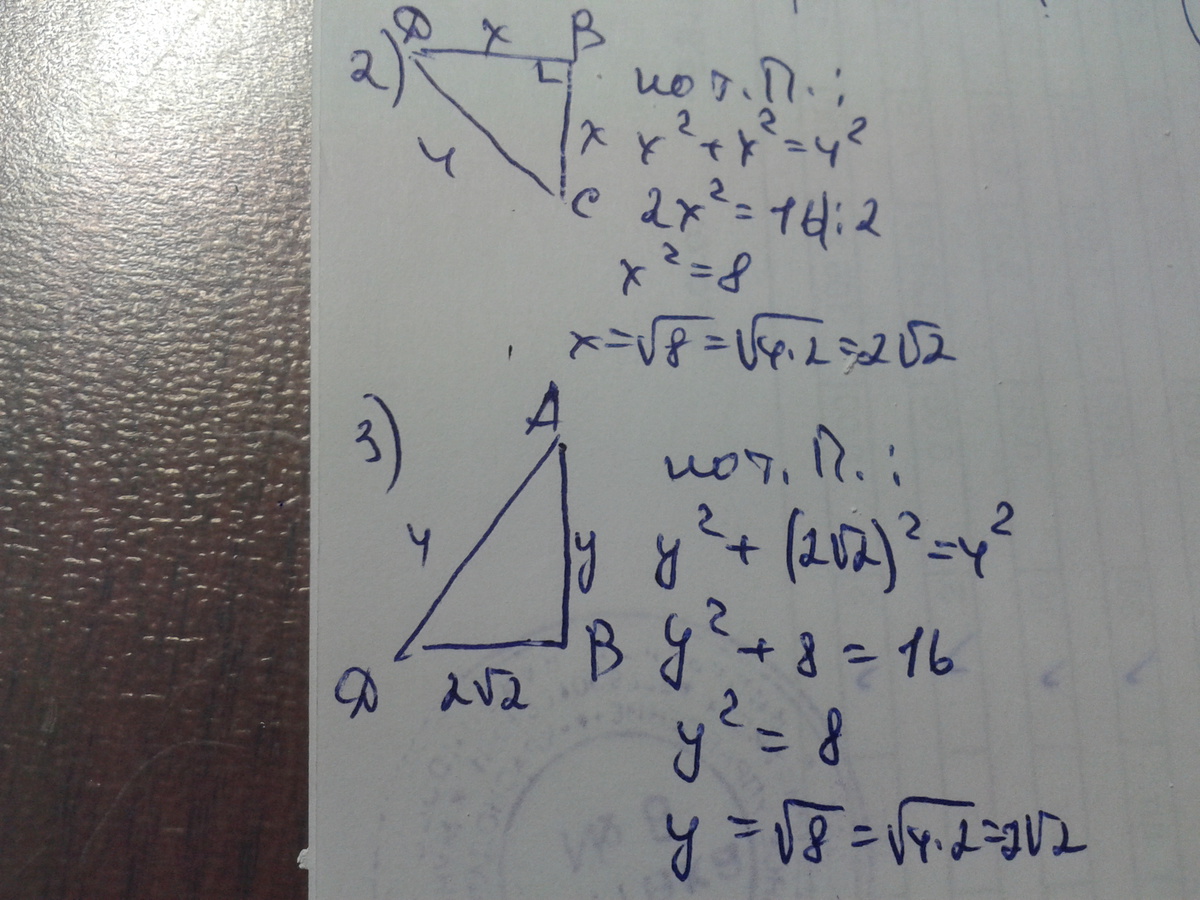 2)
D x B
L
4 x
C
по т. П. :
x² + x² = 4²
2x² = 16|:2
x² = 8
x = √8 = √4·2 = 2√2
3)
A
4 y
D 2√2 B
по т. П. :
y² + (2√2)² = 4²
y² + 8 = 16
y² = 8
y = √8 = √4·2 = 2√2